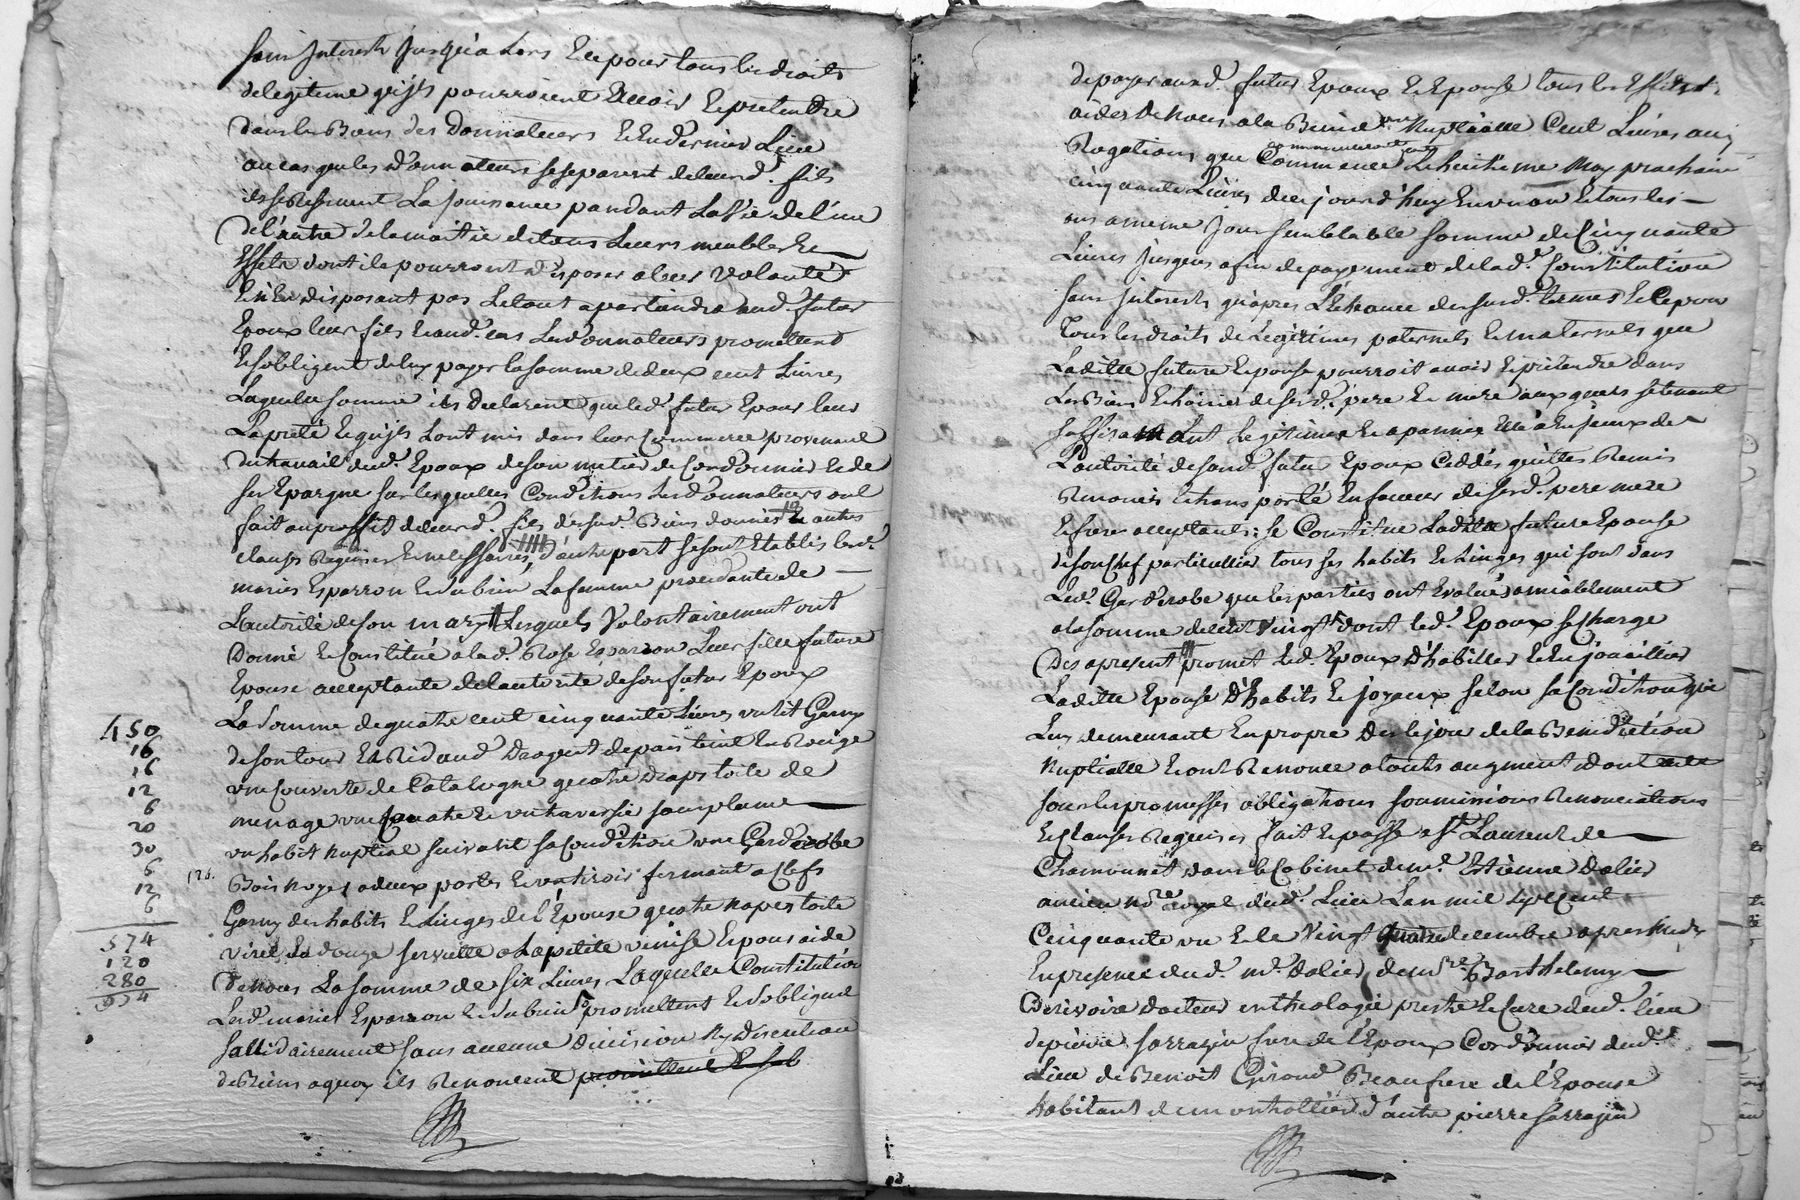 sans Interests Jusqu'a Lors Et ce pour tous les droits
de legitime qu'jls pourroient avoir Et pretendre
dans les Biens des donnateurs Et En dernier Lieu
au cas que les d'onnateurs se separent de leurd. fils
ils se Reservent La Jouissance pandant La Vie de l'une
de l'autre de la moitié de tous Leurs meubles Et
Effets dont ils pourront disposer a leur Volonté
Et n'En disposant pas Le tout apartiendra aud. futur
Epoux leur fils Et aud. cas Lesd. donnateurs promettent
Et sobligent de luy payer la somme de deux cent Livres
Laquelle somme ils declarent que led. futur Epoux leur
La preté Et qu'jls Lont mis dans leur Commerce provenant
du travail dud. Epoux de son metier de Cordonnier Et de
ses Epargne sur lesquelles Conditions Lesd. donnateurs ont
fait au proffit de leurd. fils desusd. Biens donnés Et autres
clauses Requises Et necessaires, d'autre part se sont Etablis lesd.
mariés Esparron Et Aubrin La famme procedante de
L'autorité de son mary Lesquels Volontairement ont
Donné Et Constitué a lad. Rose Esparron Leur fille future
Epouse acceptante de l'autorité de son futur Epoux
La somme de quatre cent cinquante Livres un lit Garny
de son tour Et Ridaud dragent de pais teint En Rouge
une Couverte de Catalogne quatre draps toile de
menage une Couatre Et un traversié sans plume
un habit nuptial suivant sa Condition une Garderobe
Bois noyer a deux portes Et un tiroir fermant a Clefs
Garny des habits Et Linges de l'Epouse quatre napes toile
Et douze serviette a La petite venise Et pour aide
de nous La somme de six Livres Laquelle Constitution
Lesd. mariés Esparron Et Aubrin promettent Et sobligent
sollidairement sans aucune division Ny discution
de Biens a quoy ils Renoncent promettent Et sob
450
16
16
12
6
20
30
6
12
6
574
120
280
974
de payer aud. futur Epoux Et Epouse tous les Effets
aides de nous a la Benedon Nuptialle Cent Livres aux
Rogations que Commence Le huitieme May prochain
cinquante Livres de ce jourd'huy En un an Et tous les
ans a meme Jour semblable somme de Cinquante
Livres Jusques a fin de payement de lad.e Constitution
sans Interests qu'apres L'Echeance desusd. termes Et Ce pour
Tous les droits de Legitimes paternels Et maternels que
Ladite future Epouse pourroit avoir Et pretendre dans
Les Biens Et hoiries de sesd. pere Et mere aux quels se tenant
suffisament Legitimée Et apannée
L'autorité de sond. futur Epoux Ceddés quittés Remis
Renoncés Et transporté En faveur de sesd. pere mere
Et freres acceptants; se Constitue Ladite future Epouse
de son Chef particullier tous ses habits Et Linges qui sont dans
Led. Garderobe que les parties ont Evalués amiablement
a la somme de Cent Vingt dont led. Epoux se Charge
Des apresent promet Led. Epoux D'habiller Et En joaillier
Ladite Epouse D'habits Et joyaux selon sa Condition qui
Luy demeurent En propre Des le jour de la Benediction
Nuptialle Et ont Renoncé a touts augment
sous les promesses obligations soumissions Renonciations
Et Clauses Requises fait Et passé a St Laurent de
Chamounet dans le Cabinet de me. Estienne dalies
ancien no.re royal dud. Lieu Lan mil sept Cent
Cinquante un Et le Vingt quatre decembre apres midy
En presence dud. me. dalies, de mre Barthelemy
Derivoire docteur en theologie prestre Et Cure dud. lieu
de pierre sarrazin frere de l'Epoux Cordonnier dud.
Lieu de Benoit Giroud Beaufrere de l'Epouse
habitant de montrollier d'autre pierre sarrazin